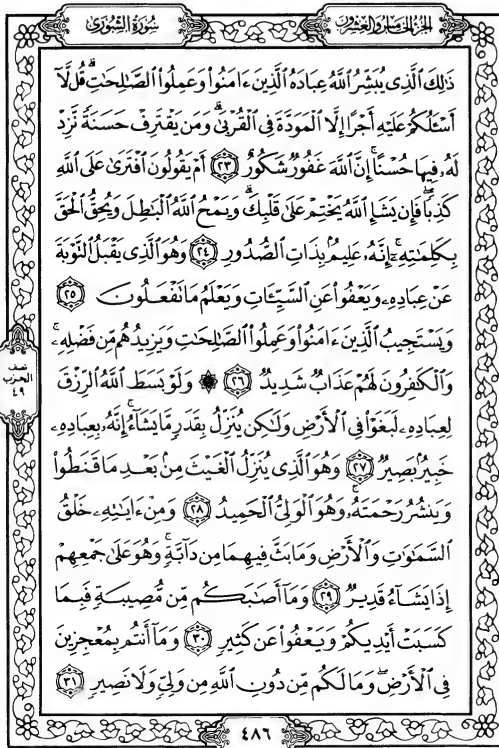 الجزء الخامس والعشرون
سورة الشورى
ذَٰلِكَ ٱلَّذِى يُبَشِّرُ ٱللَّهُ عِبَادَهُ ٱلَّذِينَ ءَامَنُوا۟ وَعَمِلُوا۟ ٱلصَّٰلِحَٰتِ ۗ قُل لَّآ
أَسْـَٔلُكُمْ عَلَيْهِ أَجْرًا إِلَّا ٱلْمَوَدَّةَ فِى ٱلْقُرْبَىٰ ۗ وَمَن يَقْتَرِفْ حَسَنَةً نَّزِدْ
لَهُۥ فِيهَا حُسْنًا ۚ إِنَّ ٱللَّهَ غَفُورٌ شَكُورٌ ٢٣ أَمْ يَقُولُونَ ٱفْتَرَىٰ عَلَى ٱللَّهِ
كَذِبًا ۖ فَإِن يَشَإِ ٱللَّهُ يَخْتِمْ عَلَىٰ قَلْبِكَ ۗ وَيَمْحُ ٱللَّهُ ٱلْبَٰطِلَ وَيُحِقُّ ٱلْحَقَّ
بِكَلِمَٰتِهِۦٓ ۚ إِنَّهُۥ عَلِيمٌۢ بِذَاتِ ٱلصُّدُورِ ٢٤ وَهُوَ ٱلَّذِى يَقْبَلُ ٱلتَّوْبَةَ
عَنْ عِبَادِهِۦ وَيَعْفُوا۟ عَنِ ٱلسَّيِّـَٔاتِ وَيَعْلَمُ مَا تَفْعَلُونَ ٢٥
وَيَسْتَجِيبُ ٱلَّذِينَ ءَامَنُوا۟ وَعَمِلُوا۟ ٱلصَّٰلِحَٰتِ وَيَزِيدُهُم مِّن فَضْلِهِۦ ۚ
وَٱلْكَٰفِرُونَ لَهُمْ عَذَابٌ شَدِيدٌ ٢٦ ۞ وَلَوْ بَسَطَ ٱللَّهُ ٱلرِّزْقَ
لِعِبَادِهِۦ لَبَغَوْا۟ فِى ٱلْأَرْضِ وَلَٰكِن يُنَزِّلُ بِقَدَرٍ مَّا يَشَآءُ ۚ إِنَّهُۥ بِعِبَادِهِۦ
خَبِيرٌۢ بَصِيرٌ ٢٧ وَهُوَ ٱلَّذِى يُنَزِّلُ ٱلْغَيْثَ مِنۢ بَعْدِ مَا قَنَطُوا۟
وَيَنشُرُ رَحْمَتَهُۥ ۚ وَهُوَ ٱلْوَلِىُّ ٱلْحَمِيدُ ٢٨ وَمِنْ ءَايَٰتِهِۦ خَلْقُ
ٱلسَّمَٰوَٰتِ وَٱلْأَرْضِ وَمَا بَثَّ فِيهِمَا مِن دَآبَّةٍ ۚ وَهُوَ عَلَىٰ جَمْعِهِمْ
إِذَا يَشَآءُ قَدِيرٌ ٢٩ وَمَآ أَصَٰبَكُم مِّن مُّصِيبَةٍ فَبِمَا
كَسَبَتْ أَيْدِيكُمْ وَيَعْفُوا۟ عَن كَثِيرٍ ٣٠ وَمَآ أَنتُم بِمُعْجِزِينَ
فِى ٱلْأَرْضِ ۖ وَمَا لَكُم مِّن دُونِ ٱللَّهِ مِن وَلِىٍّ وَلَا نَصِيرٍ ٣١
نصف
الحزب
٤٩
٤٨٦